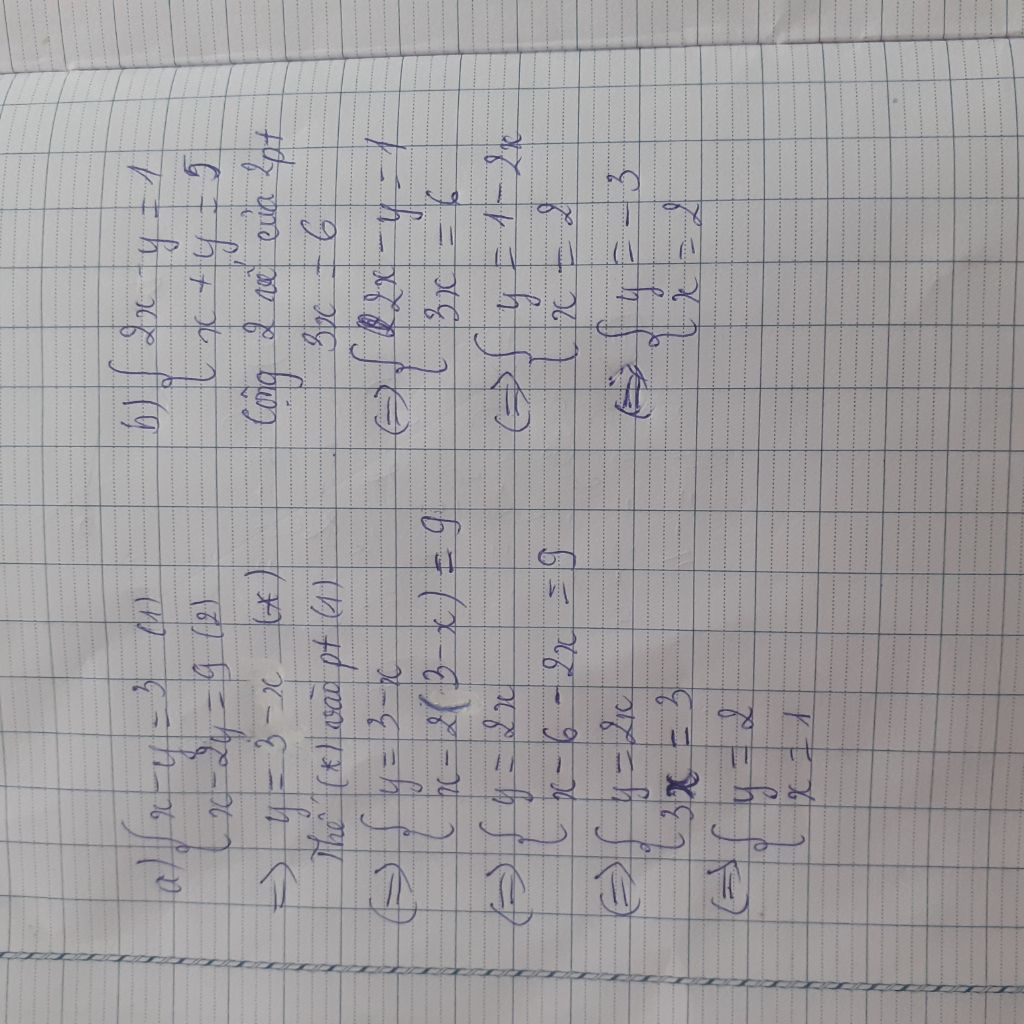 a) { x - y = 3 (1)
x - 2y = 9 (2)
=> y = 3 - x (*)
Thế (*) vào pt (1)
(=> { y = 3 - x
x - 2(3 - x) = 9
(=> { y = 2x
x - 6 - 2x = 9
(=> { y = 2x
3x = 3
(=> { y = 2
x = 1
b) { 2x - y = 1
x + y = 5
Cộng 2 vế của 2pt
3x = 6
(=> { 2x - y = 1
3x = 6
(=> { y = 1 - 2x
x = 2
(=> { y = -3
x = 2